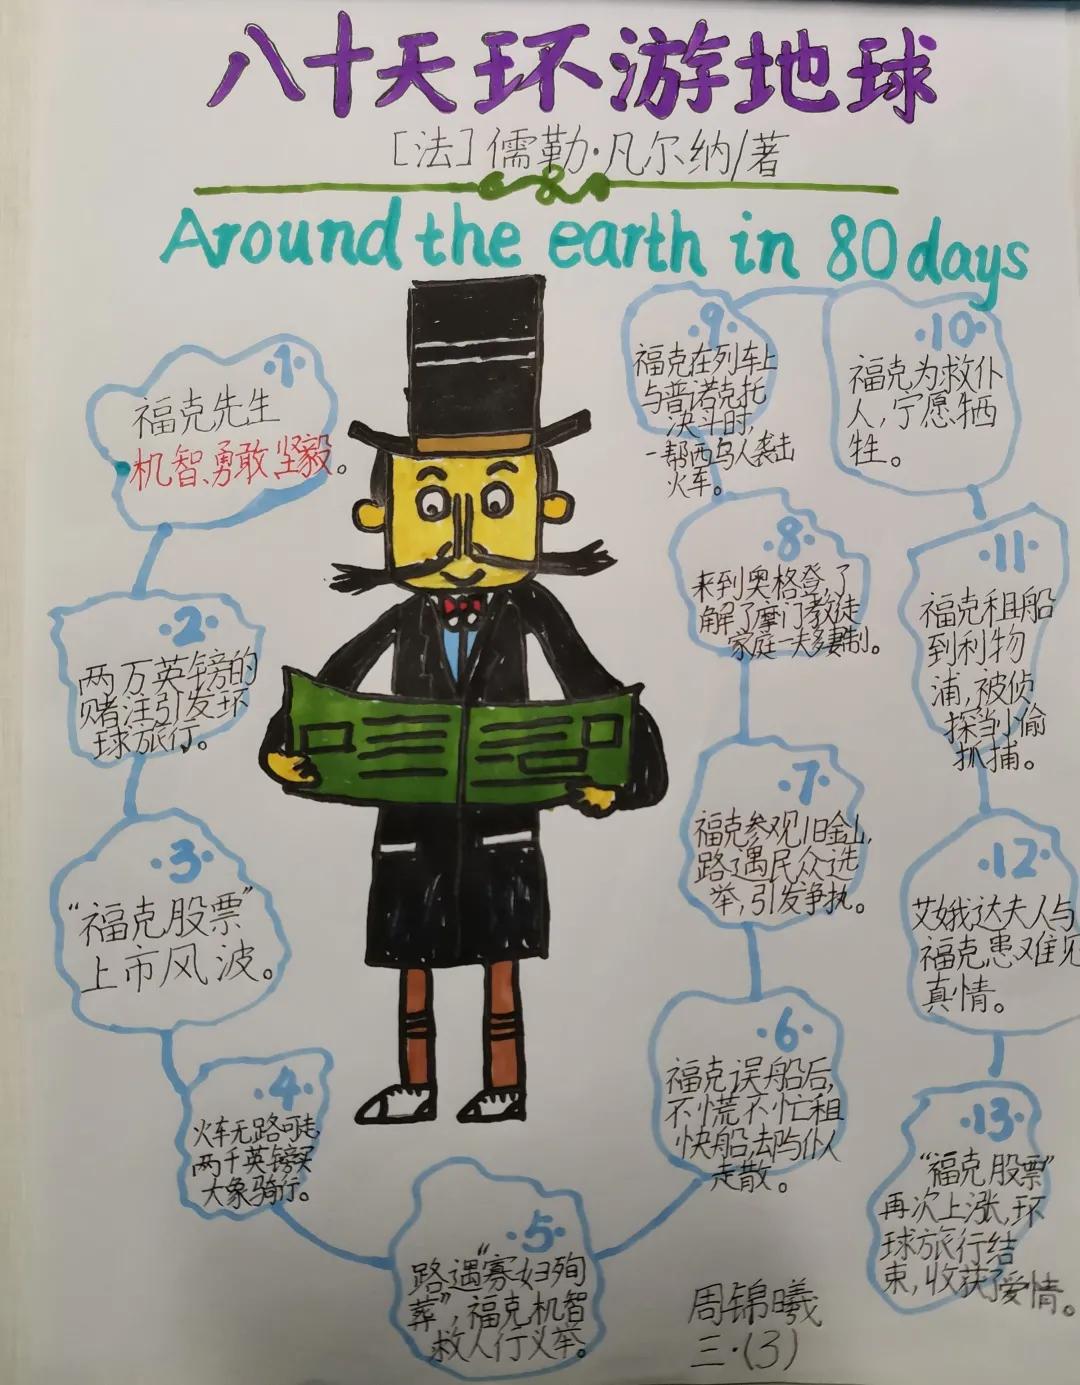 八十天环游地球
[法]儒勒·凡尔纳/著
Around the earth in 80 days
·1·
福克先生
机智、勇敢、坚毅。
·2·
两万英镑的
赌注引发环
球旅行。
·3·
“福克股票”
上市风波。
·4·
火车无路可走,
两千英镑买
大象骑行。
·5·
路遇“寡妇殉
葬”,福克机智
救人行义举。
·6·
福克误船后,
不慌不忙租
快船,却与仆人
走散。
·7·
福克参观旧金山,
路遇民众选
举,引发争执。
·8·
来到奥格登,了
解了摩门教徒
家庭一夫多妻制。
·9·
福克在列车上
与普诺克托
决斗时,
一帮西乌人袭击
火车。
·10·
福克为救仆
人,宁愿牺
牲。
·11·
福克租船
到利物
浦,被侦
探当小偷
抓捕。
·12·
艾娥达夫人与
福克患难见
真情。
·13·
“福克股票”
再次上涨,环
球旅行结
束,收获了爱情。
周锦曦
三·(3)